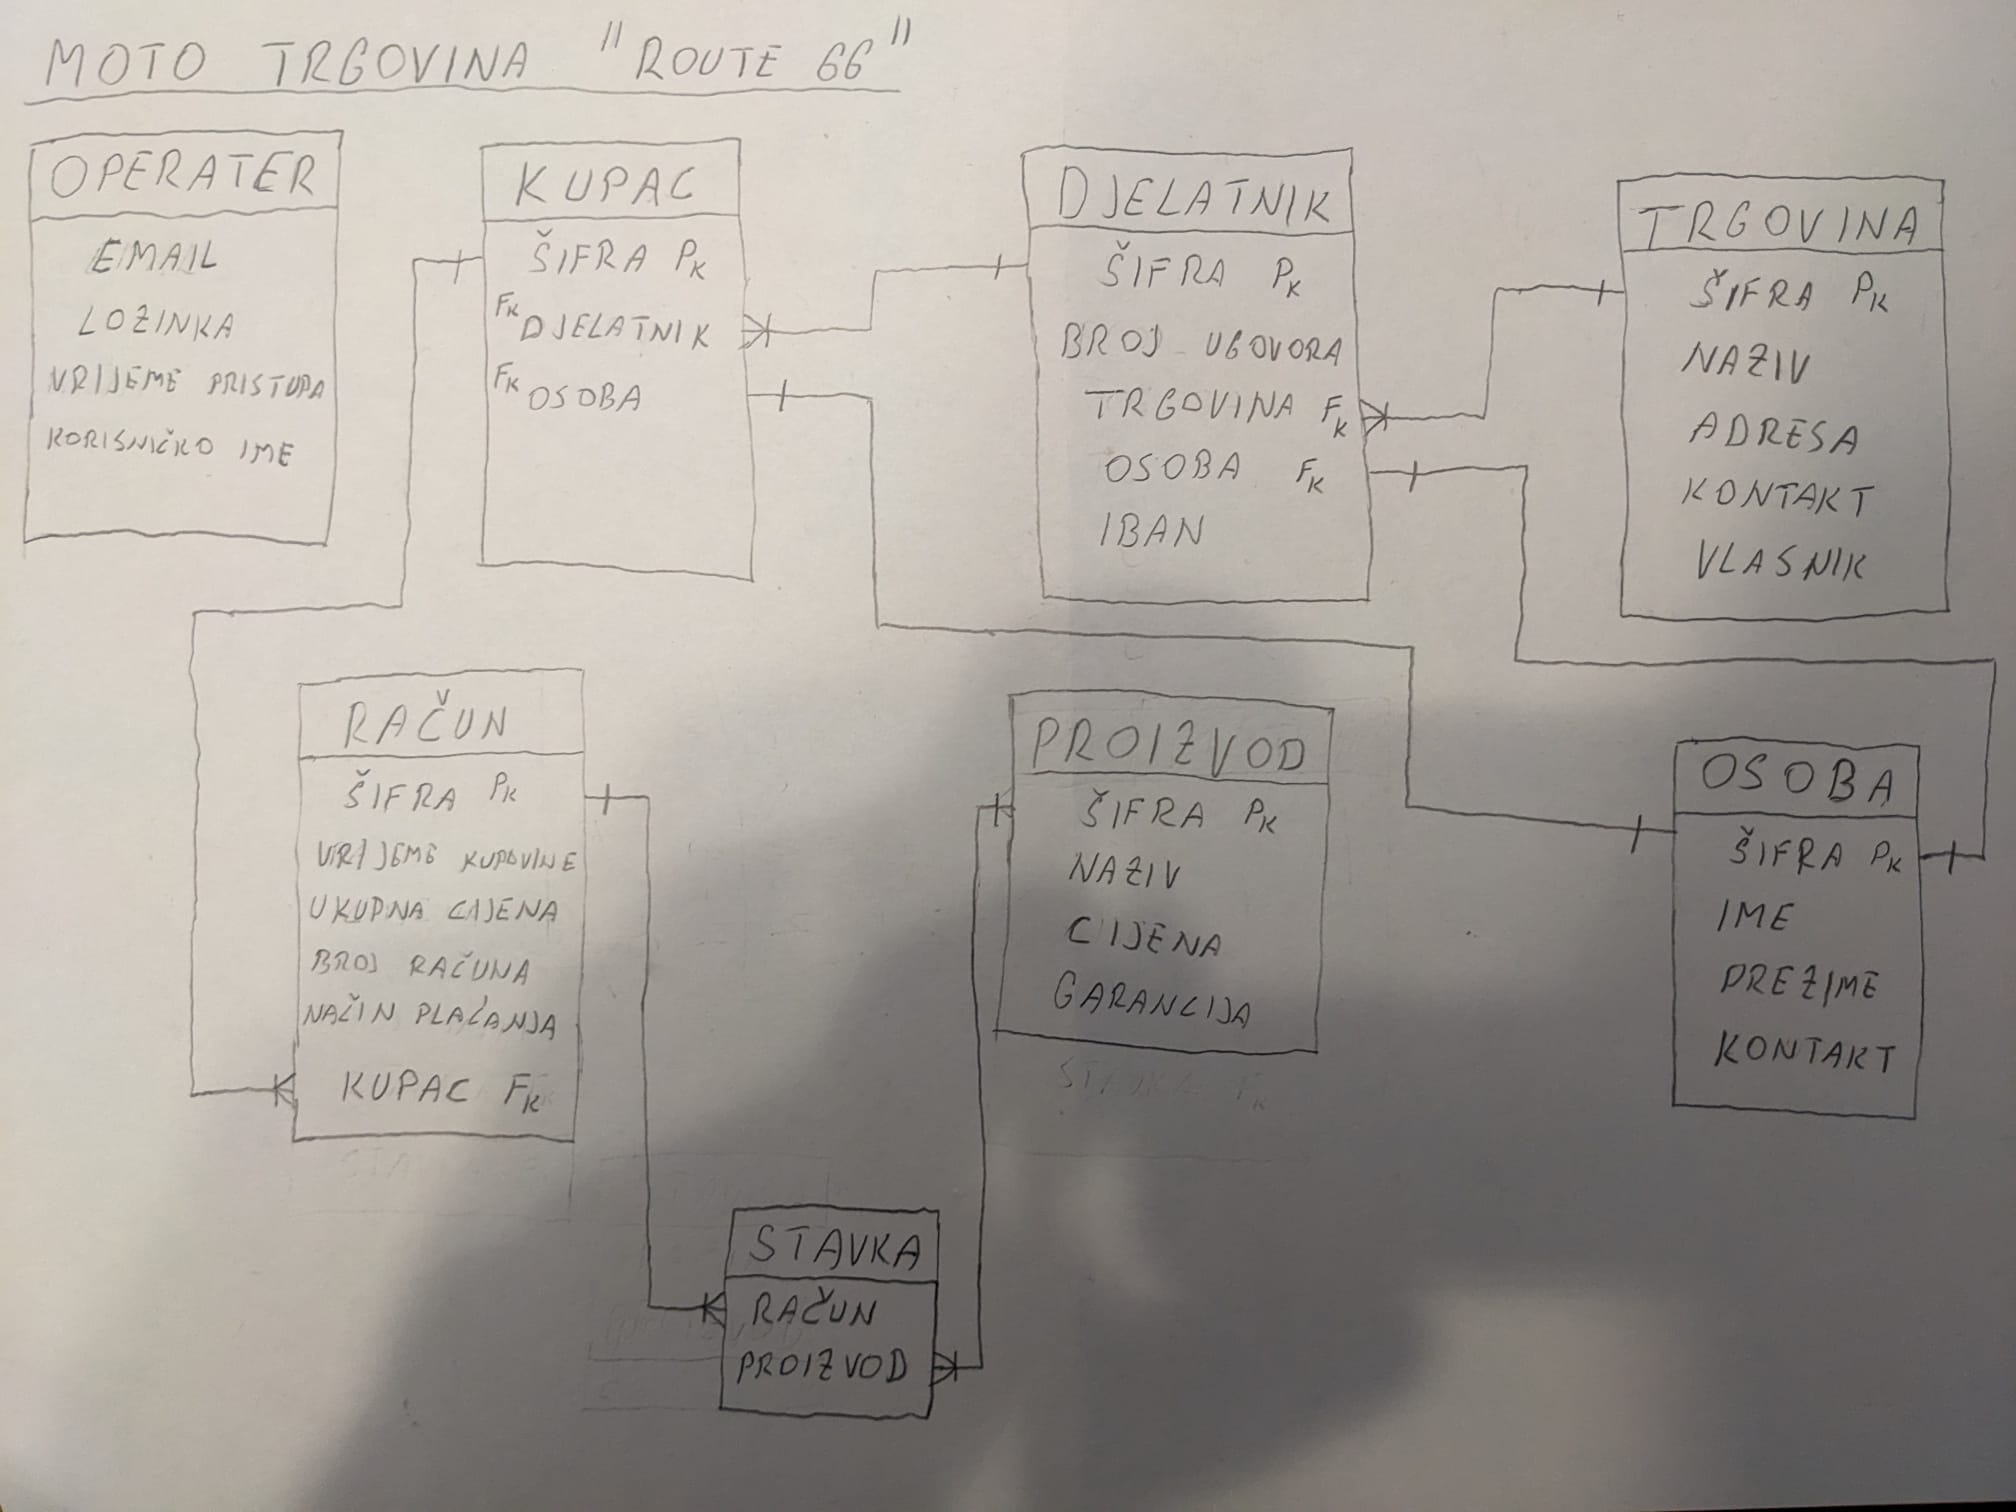 MOTO TRGOVINA "ROUTE 66"
OPERATER
EMAIL
LOZINKA
VRIJEME PRISTUPA
KORISNIČKO IME
KUPAC
ŠIFRA PK
FK DJELATNIK
FK OSOBA
DJELATNIK
ŠIFRA PK
BROJ UGOVORA
TRGOVINA FK
OSOBA FK
IBAN
TRGOVINA
ŠIFRA PK
NAZIV
ADRESA
KONTAKT
VLASNIK
RAČUN
ŠIFRA PK
VRIJEME KUPOVINE
UKUPNA CIJENA
BROJ RAČUNA
NAČIN PLAĆANJA
KUPAC FK
PROIZVOD
ŠIFRA PK
NAZIV
CIJENA
GARANCIJA
STAVKA FK
OSOBA
ŠIFRA PK
IME
PREZIME
KONTAKT
STAVKA
RAČUN
PROIZVOD